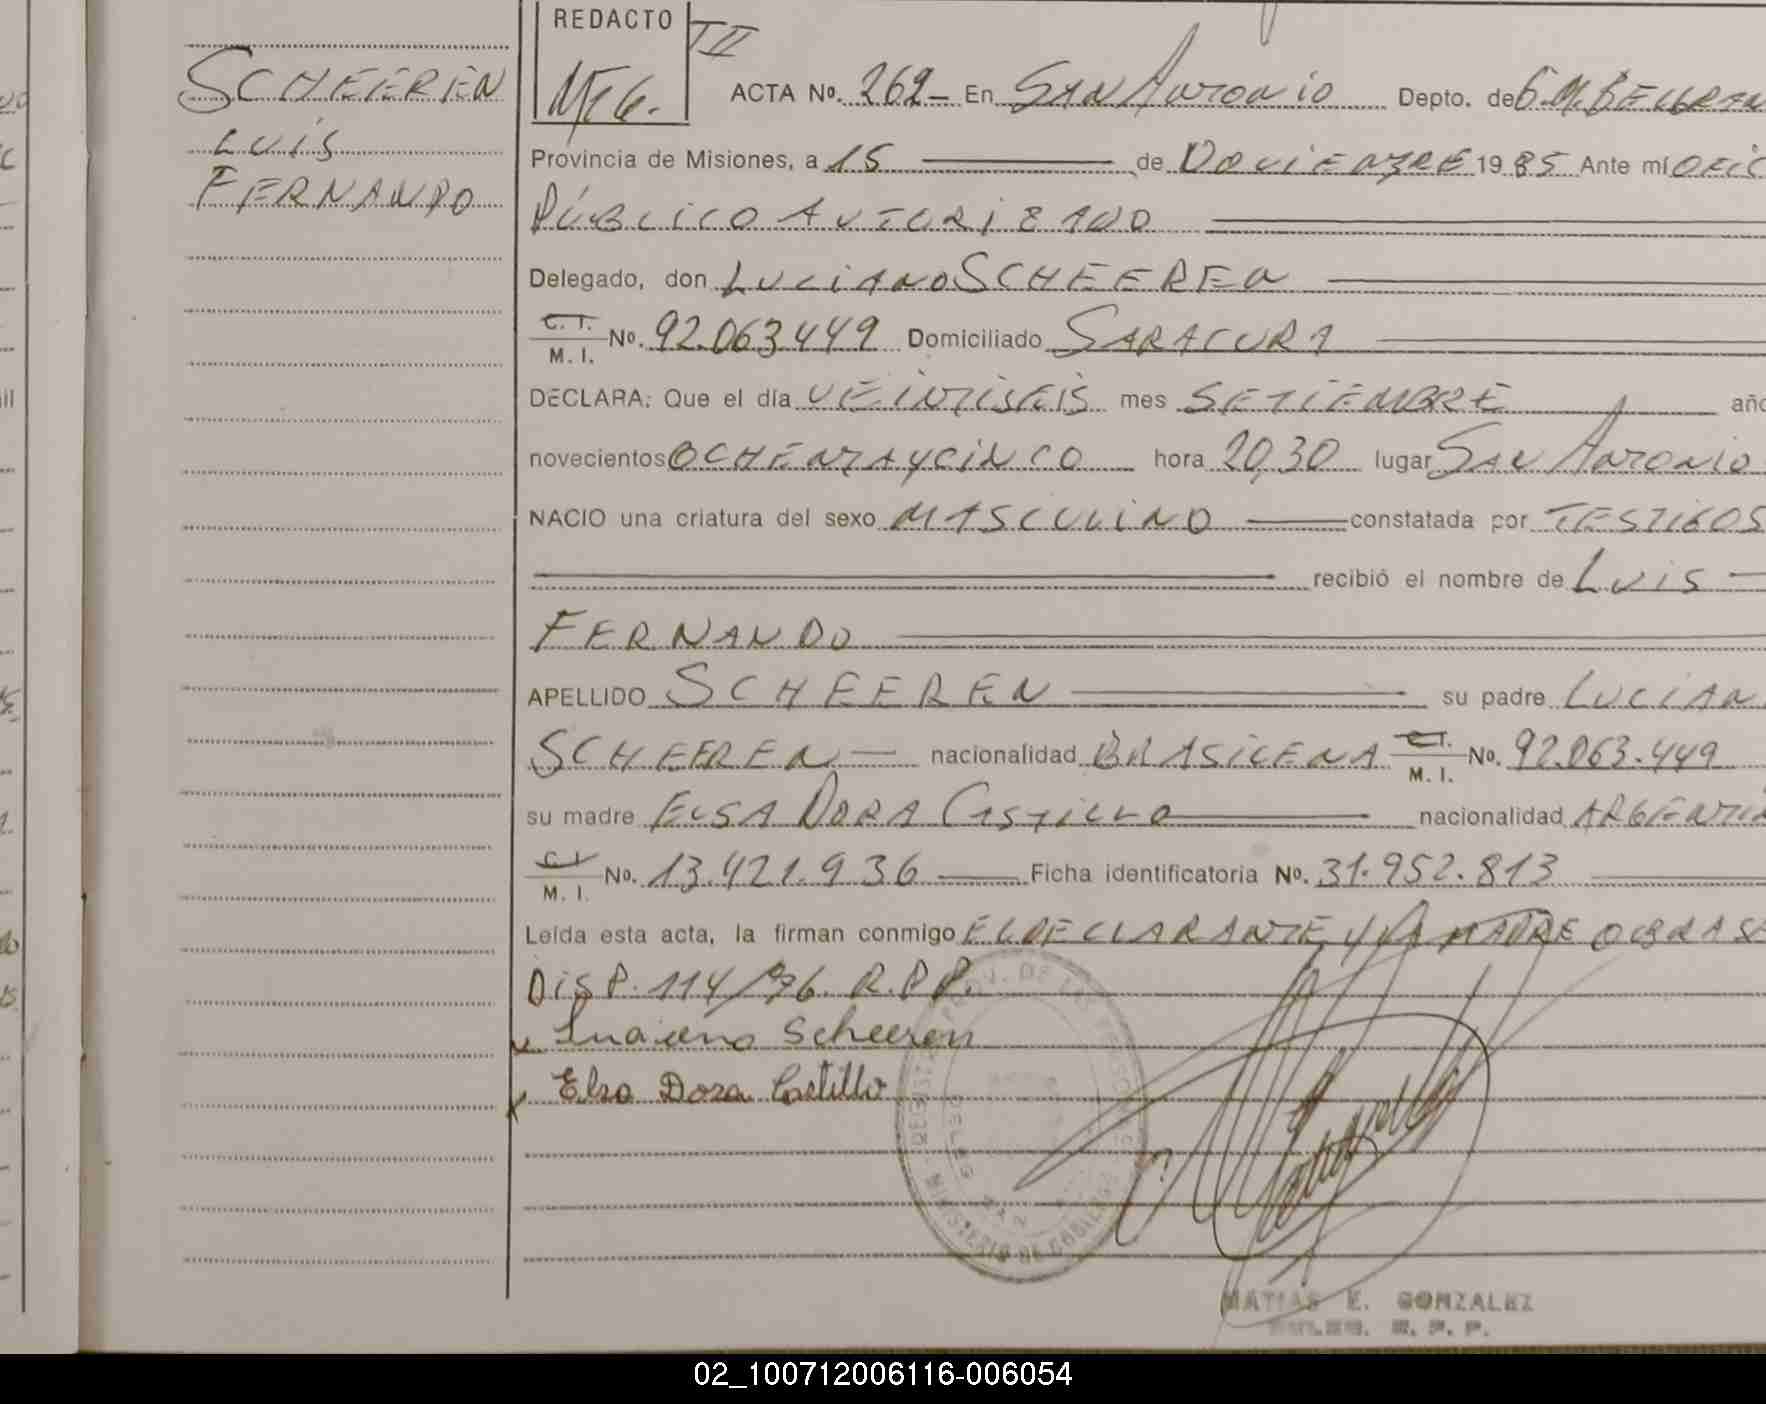 SCHEEREN
LUIS
FERNANDO
REDACTO
TII
ACTA No. 262- En SAN ANTONIO Depto. de G.M. BELGRAN
Provincia de Misiones, a 15 de NOVIEMBRE 1985 Ante mí OFIC
PÚBLICO AUTORIZADO
Delegado, don LUCIANO SCHEEREN
C. I.
M. I. No. 92.063.449 Domiciliado SARACURA
DECLARA: Que el día VEINTISEIS mes SETIEMBRE año
novecientos OCHENTA Y CINCO hora 20,30 lugar SAN ANTONIO
NACIO una criatura del sexo MASCULINO constatada por TESTIGOS
recibió el nombre de LUIS
FERNANDO
APELLIDO SCHEEREN su padre LUCIAN
SCHEEREN nacionalidad BRASILENA C.I.
M. I. No. 92.063.449
su madre ELSA DORA CASTILLO nacionalidad ARGENTIN
C.I.
M. I. No. 13.421.936 Ficha identificatoria No. 31.952.813
Leída esta acta, la firman conmigo EL DECLARANTE Y LA MADRE OBRA SE
DISP. 114/76. R.P.P.
x Luciano Scheeren
x Elsa Dora Castillo
MINISTERIO DE GOBIERNO
MATIAS E. GONZALEZ
R. P. P.
02_100712006116-006054